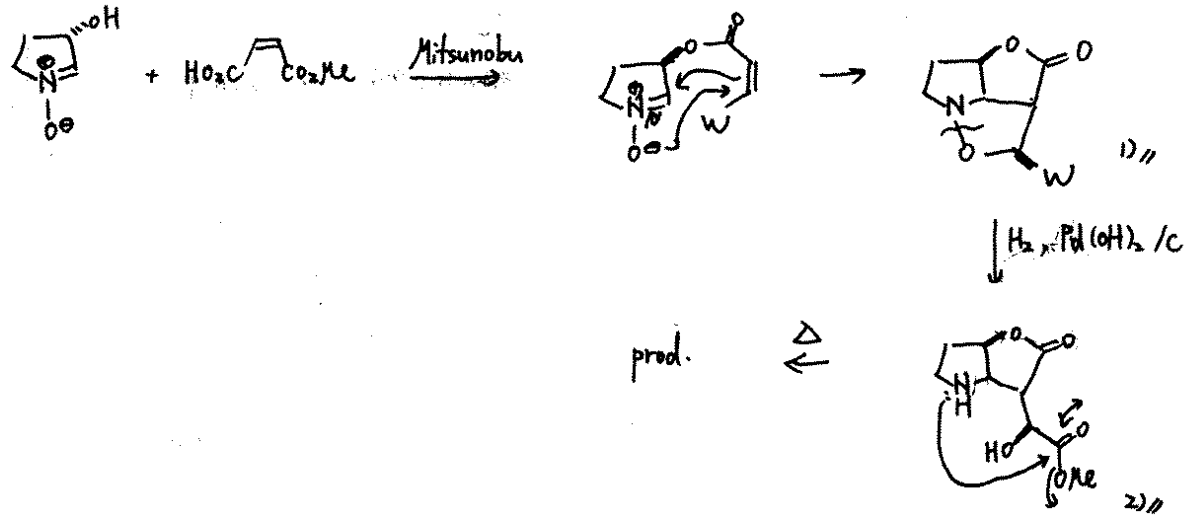 OH
N
O⊖
+
HO₂C
CO₂Me
Mitsunobu
O
O
N
O⊖
W
O
O
N
O
W
1)//
H₂, Pd(OH)₂/C
O
O
N
H
HO
O
OMe
2)//
Δ
prod.